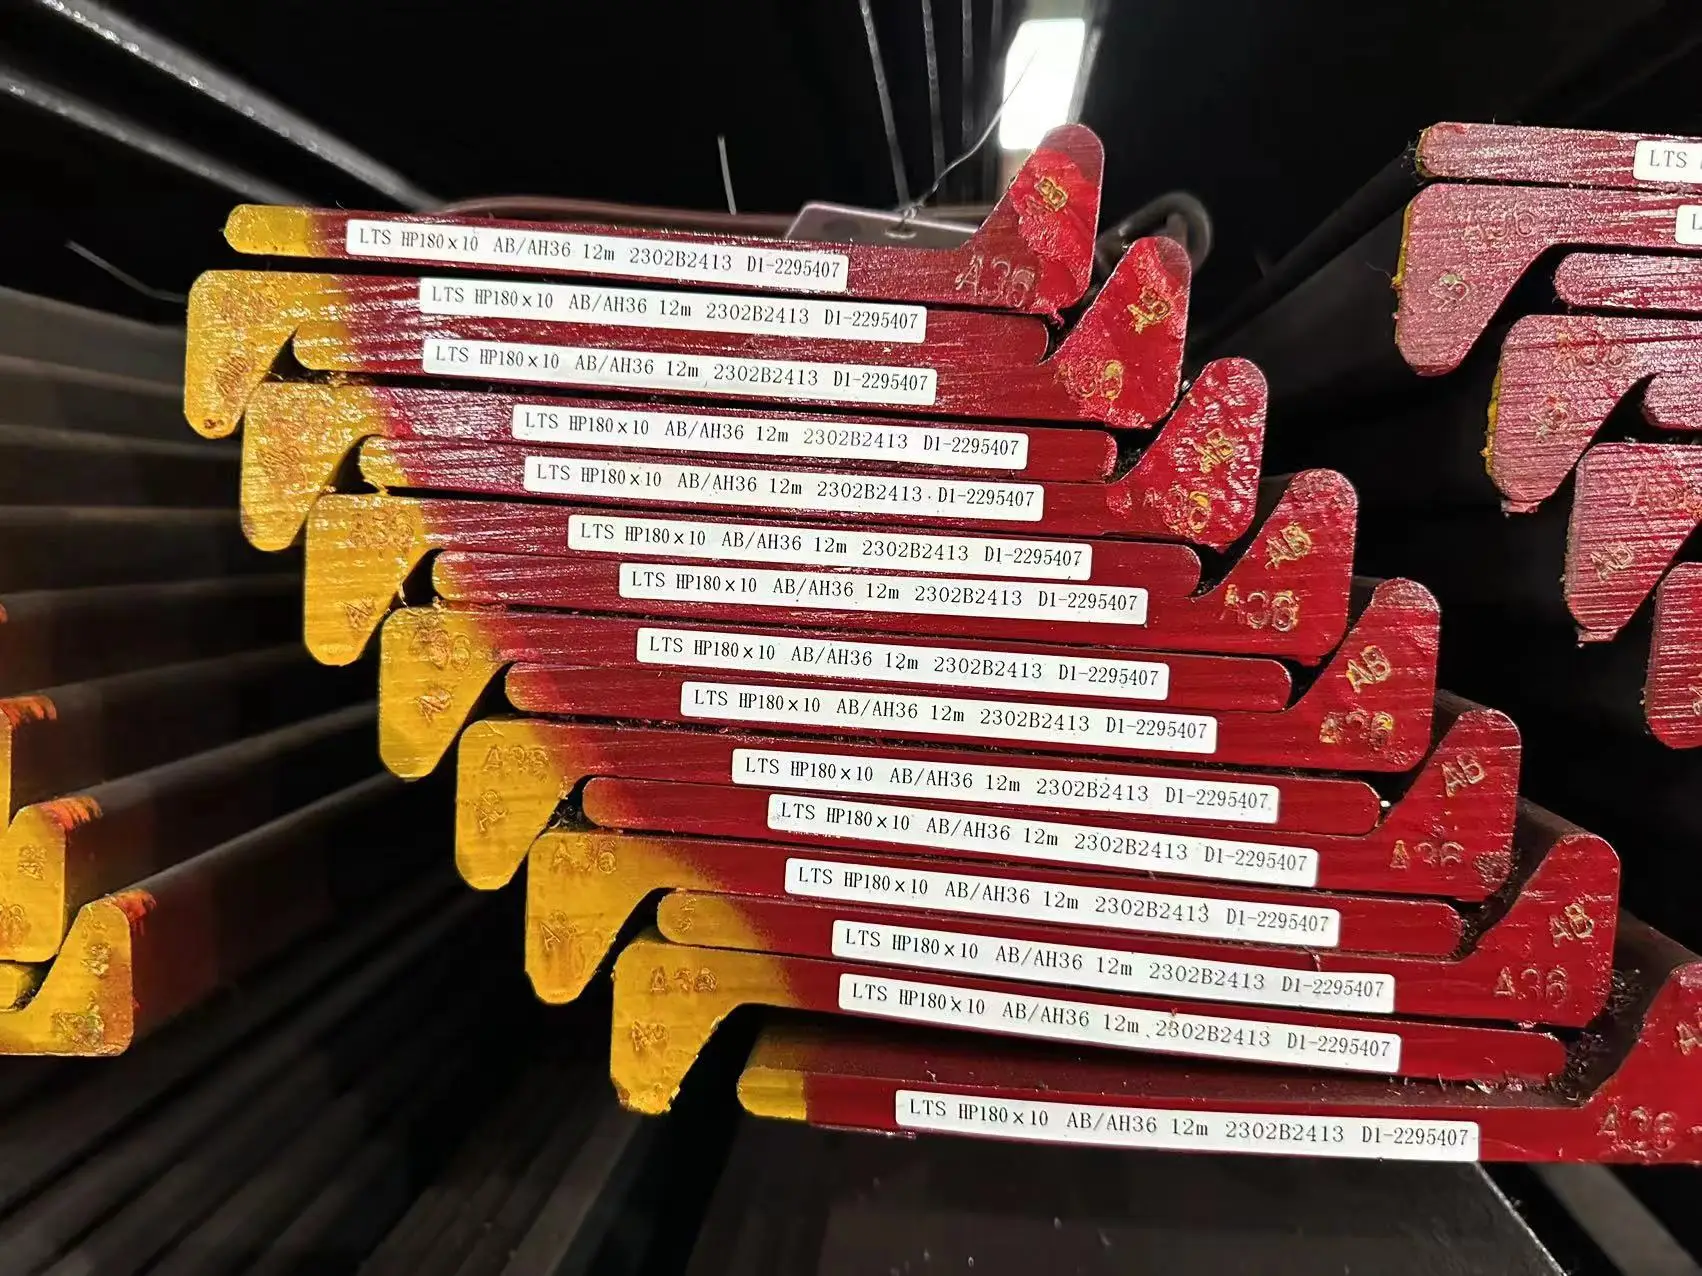 LTS
AB
LTS HP180×10 AB/AH36 12m 2302B2413 D1-2295407
A36
A36
AB
LTS HP180×10 AB/AH36 12m 2302B2413 D1-2295407
AB
LTS HP180×10 AB/AH36 12m 2302B2413 D1-2295407
LTS HP180×10 AB/AH36 12m 2302B2413 D1-2295407
AB
LTS HP180×10 AB/AH36 12m 2302B2413 D1-2295407
LTS HP180×10 AB/AH36 12m 2302B2413 D1-2295407
AB
LTS HP180×10 AB/AH36 12m 2302B2413 D1-2295407
A36
LTS HP180×10 AB/AH36 12m 2302B2413 D1-2295407
AB
LTS HP180×10 AB/AH36 12m 2302B2413 D1-2295407
A36
LTS HP180×10 AB/AH36 12m 2302B2413 D1-2295407
AB
LTS HP180×10 AB/AH36 12m 2302B2413 D1-2295407
A36
A36
LTS HP180×10 AB/AH36 12m 2302B2413 D1-2295407
AB
LTS HP180×10 AB/AH36 12m 2302B2413 D1-2295407
A36
A36
LTS HP180×10 AB/AH36 12m 2302B2413 D1-2295407
AB
LTS HP180×10 AB/AH36 12m 2302B2413 D1-2295407
A36